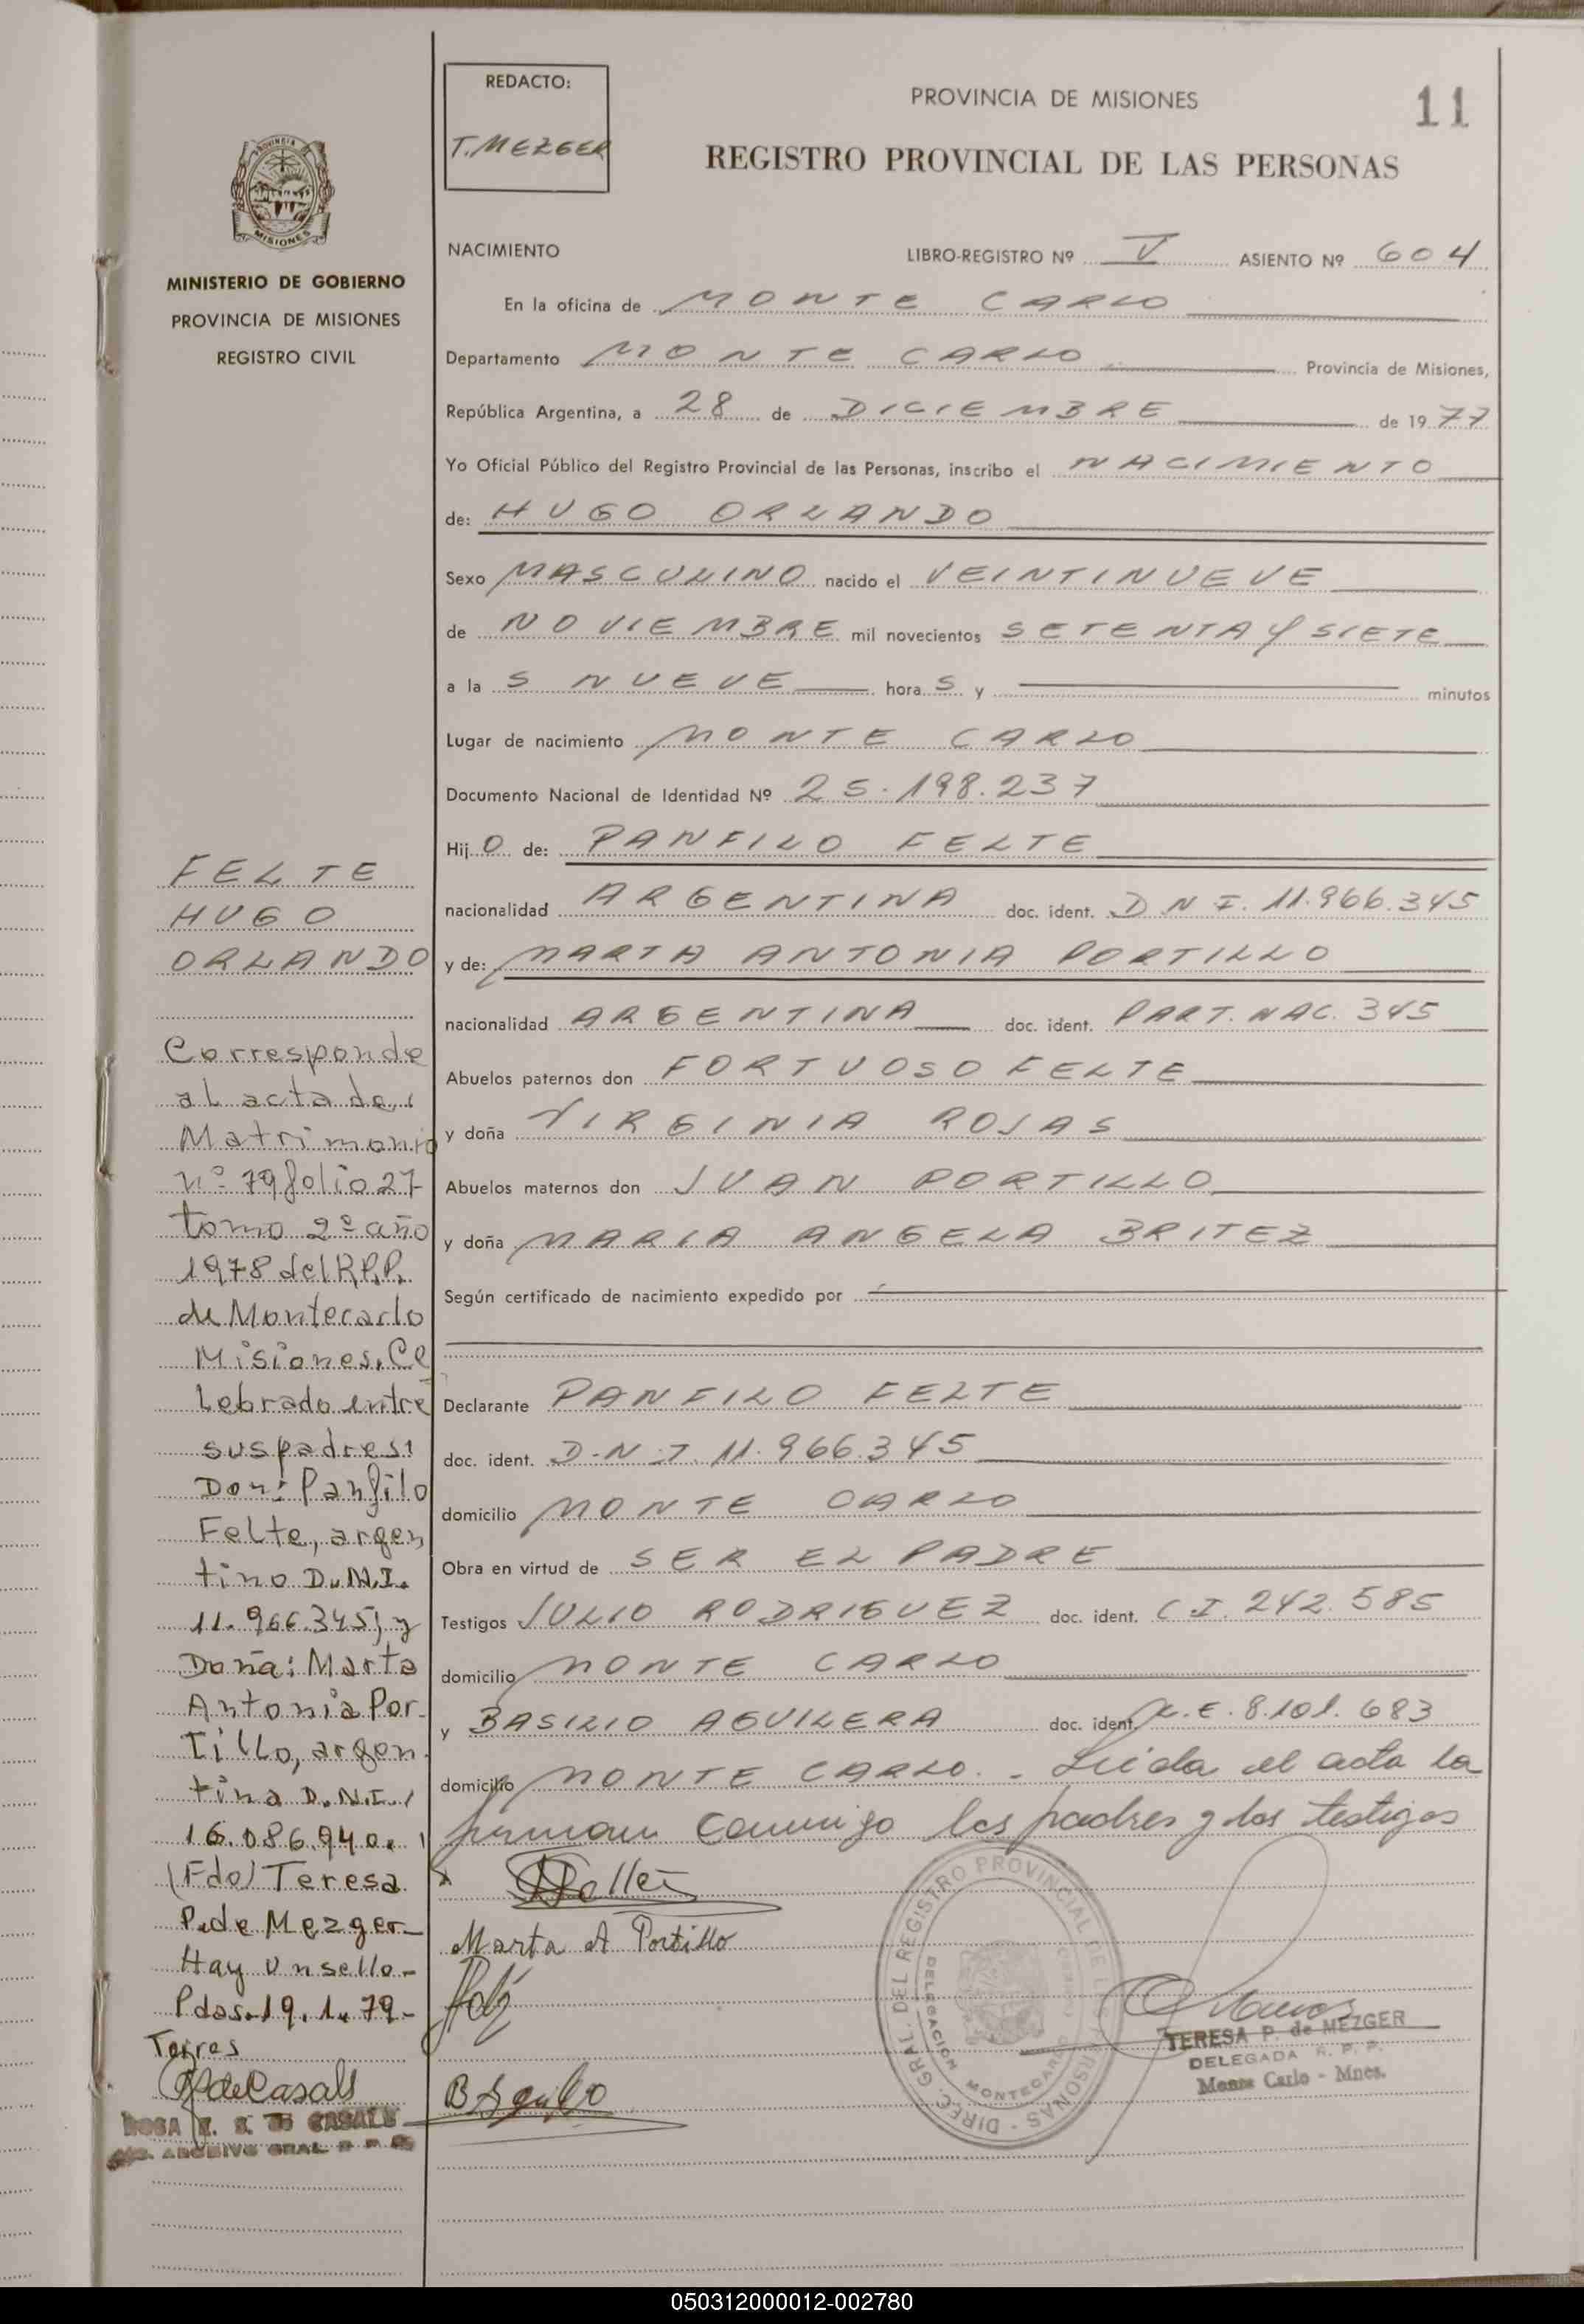 REDACTO:
T. MEZGER
PROVINCIA DE MISIONES
11
REGISTRO PROVINCIAL DE LAS PERSONAS
NACIMIENTO
LIBRO-REGISTRO Nº V ASIENTO Nº 604
En la oficina de MONTE CARLO
Departamento MONTE CARLO Provincia de Misiones,
República Argentina, a 28 de DICIEMBRE de 1977
Yo Oficial Público del Registro Provincial de las Personas, inscribo el NACIMIENTO
de: HUGO ORLANDO
Sexo MASCULINO nacido el VEINTINUEVE
de NOVIEMBRE mil novecientos SETENTA Y SIETE
a las NUEVE horas y minutos
Lugar de nacimiento MONTE CARLO
Documento Nacional de Identidad Nº 25.198.237
Hijo de: PANFILO FELTE
nacionalidad ARGENTINA doc. ident. DNI. 11.966.345
y de: MARTA ANTONIA PORTILLO
nacionalidad ARGENTINA doc. ident. PART. NAC. 345
Abuelos paternos don FORTUOSO FELTE
y doña VIRGINIA ROJAS
Abuelos maternos don JUAN PORTILLO
y doña MARIA ANGELA BRITEZ
Según certificado de nacimiento expedido por
Declarante PANFILO FELTE
doc. ident. D.N.I. 11.966.345
domicilio MONTE CARLO
Obra en virtud de SER EL PADRE
Testigos JULIO RODRIGUEZ doc. ident. C.I. 242.585
domicilio MONTE CARLO
y BASILIO AGUILERA doc. ident. L.E. 8.101.683
domicilio MONTE CARLO. - Leida el acta la
firman conmigo los padres y los testigos
Marta A Portillo
DIREC. GRAL. DEL REGISTRO PROVINCIAL DE LAS PERSONAS
DELEGACION MONTECARLO
TERESA P. de MEZGER
DELEGADA R. P. P.
Monte Carlo - Mnes.
PROVINCIA
MISIONES
MINISTERIO DE GOBIERNO
PROVINCIA DE MISIONES
REGISTRO CIVIL
FELTE
HUGO
ORLANDO
Corresponde
al acta de
Matrimonio
nº 79 folio 27
tomo 2º año
1978 del R.P.P.
de Montecarlo
Misiones, Ce
lebrado entre
sus padres:
Don: Panfilo
Felte, argen
tino D.N.I.
11.966.345; y
Doña: Marta
Antonia Por-
Tillo, argen-
tina D.N.I.
16.086.940.
(Fdo) Teresa
P. de Mezger-
Hay un sello-
Pdas. 19.1.79-
Torres
ROSA E. S. DE CASALS
ARCHIVO GRAL R P P
050312000012-002780